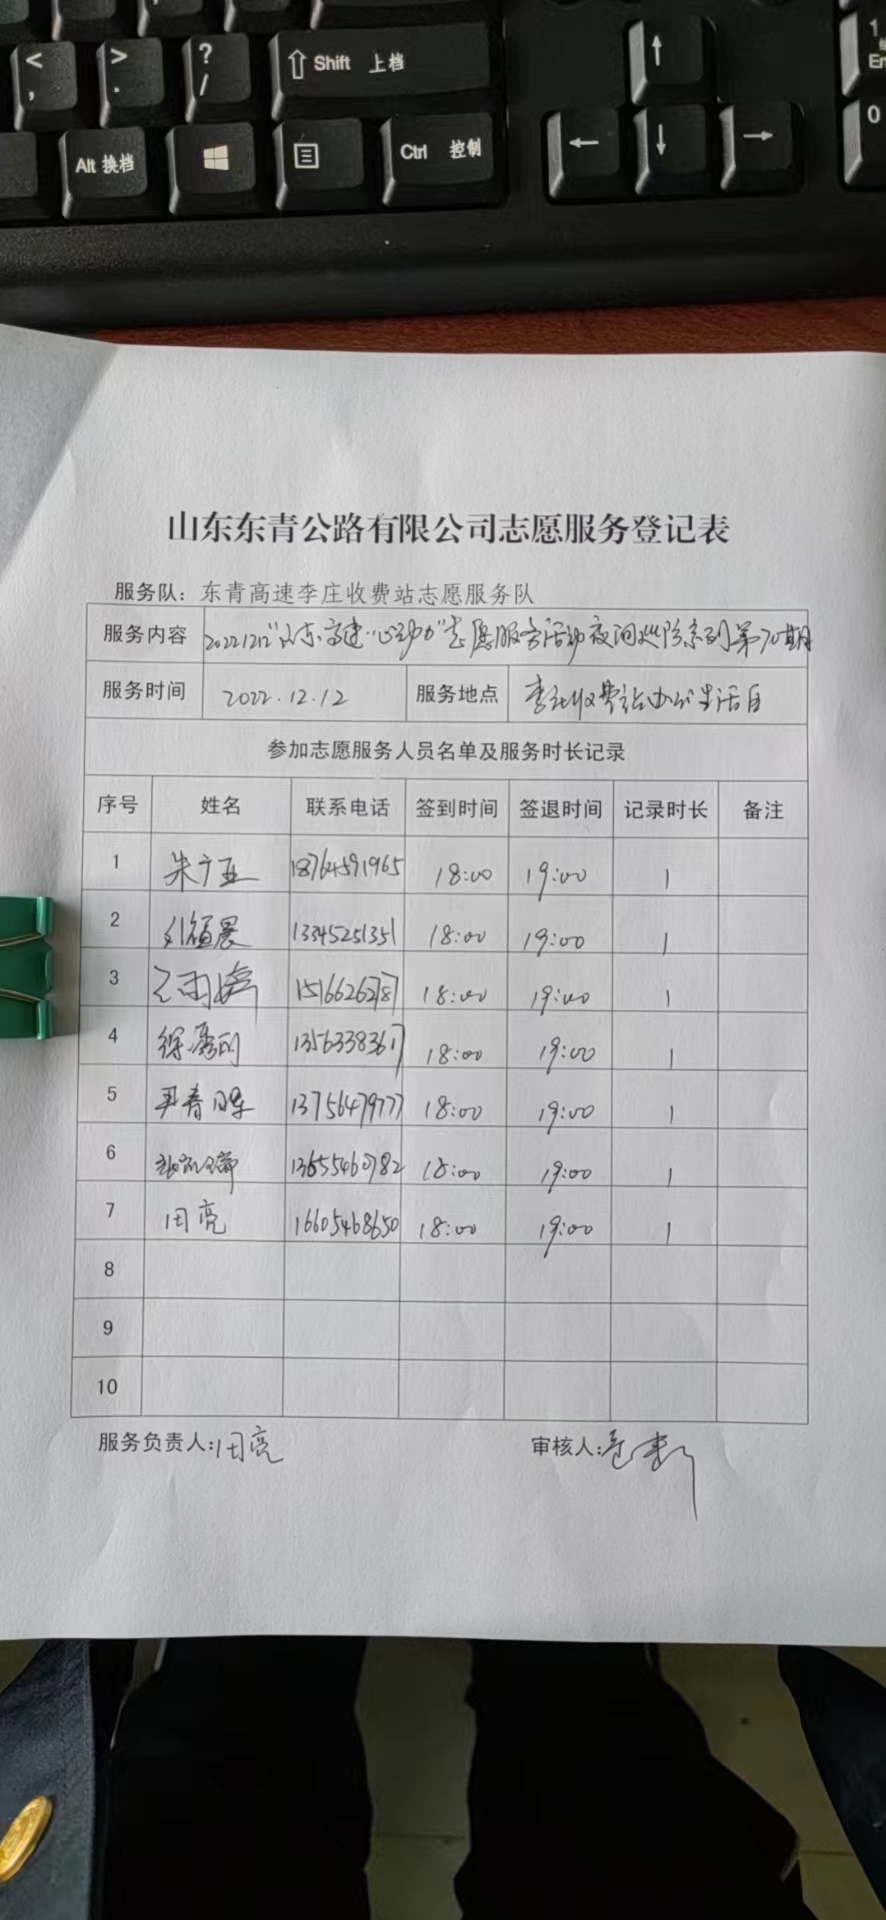 <
,
>
.
?
/
Shift 上档
1
En
Alt 换档
Ctrl 控制
0
山东东青公路有限公司志愿服务登记表
服务队：东青高速李庄收费站志愿服务队
服务内容 20221212"山东高速·心动力"志愿服务活动夜间巡防系列第70期
服务时间 2022.12.12 服务地点 李庄收费站办公生活区
参加志愿服务人员名单及服务时长记录
序号 姓名 联系电话 签到时间 签退时间 记录时长 备注
1 朱广亚 18764591965 18:00 19:00 1
2 13345251351 18:00 19:00 1
3 15166262787 18:00 19:00 1
4 13563383617 18:00 19:00 1
5 13756479777 18:00 19:00 1
6 13655460782 18:00 19:00 1
7 田亮 16605468650 18:00 19:00 1
8
9
10
服务负责人:田亮 审核人: